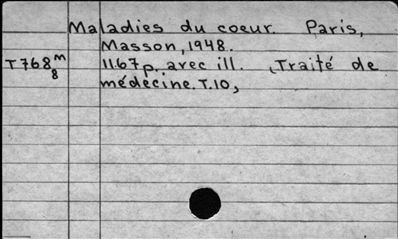 Maladies du coeur. Paris,
Masson, 1948.
T768m 1167p. avec ill. (Traité de
8 médecine. T.10,